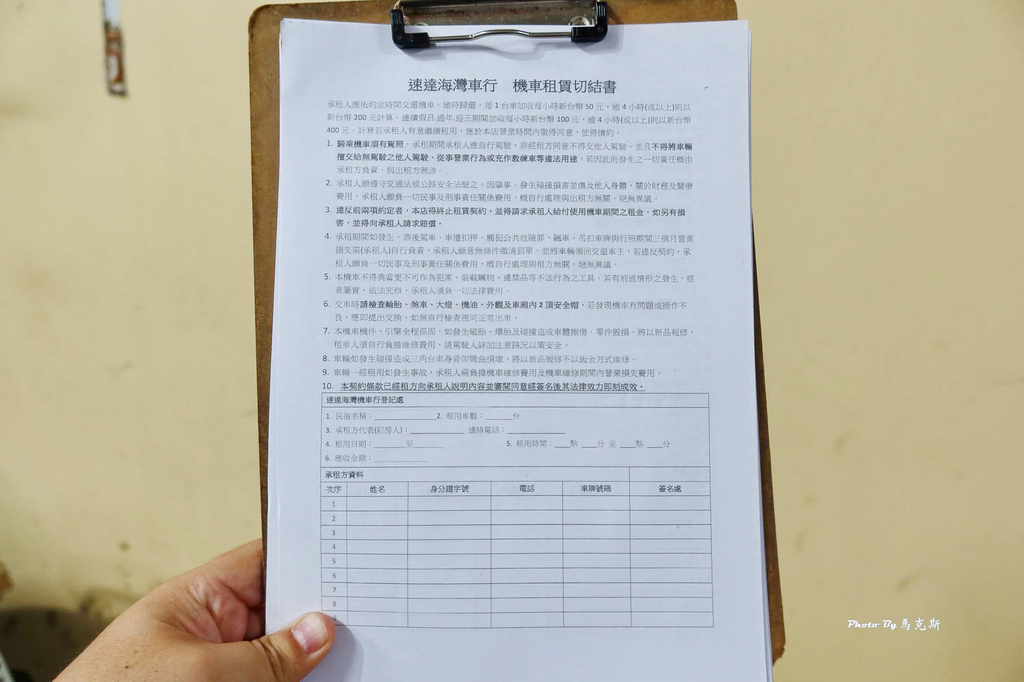 速達海灣車行 機車租賃切結書
承租人應依約定時間交還機車，逾時歸還，每 1 台車加收每小時新台幣 50 元，逾 4 小時(或以上)則以
新台幣 200 元計算。連續假日.過年.迎王期間加收每小時新台幣 100 元，逾 4 小時(或以上)則以新台幣
400 元。計算若承租人有意繼續租用，應於本店營業時間內徵得同意，使得續約。
1. 騎乘機車須有駕照，承租期間承租人應自行駕駛，非經租方同意不得交他人駕駛、並且不得將車輛
擅交給無駕駛之他人駕駛、從事營業行為或充作教練車等違法用途，若因此而發生之一切責任概由
承租方負責，與出租方無涉。
2. 承租人願遵守交通法規公路安全法駛之，因肇事、發生碰撞損害並傷及他人身體，關於財務及醫療
費用，承租人願負一切民事及刑事責任關係費用，概自行處理與出租方無關，絕無異議。
3. 違反前兩項約定者，本店得終止租賃契約，並得請求承租人給付使用機車期間之租金，如另有損
害，並得向承租人請求賠償。
4. 承租期間如發生、酒後駕車、車遭扣押、觸犯公共危險罪、飆車、吊扣車牌與行照期間三個月營業
損失需(承租人)自行負責，承租人願意無條件繳清罰單，並將車輛領回交還車主，若違反契約，承
租人願負一切民事及刑事責任關係費用，概自行處理與租方無關，絕無異議。
5. 本機車不得典當更不可作為犯案、裝載贓物、違禁品等不法行為之工具，若有前述情形之發生，經
查屬實，依法究辦，承租人須負一切法律費用。
6. 交車時請檢查輪胎、煞車、大燈、機油、外觀及車廂內 2 頂安全帽，若發現機車有問題或操作不
良，應即提出交換，如無自行檢查視同正常出車。
7. 本機車機件、引擎全程保固，如發生破胎、爆胎及碰撞造成車體擦傷、零件毀損，將以新品報修，
租車人須自行負擔維修費用，請駕駛人詳加注意路況以策安全。
8. 車輛如發生碰撞造成三角台車身骨架彎曲損壞，將以新品報修不以鈑金方式維修。
9. 車輛一經租用如發生事故、承租人需負擔機車維修費用及機車維修期間內營業損失費用。
10. 本契約條款已經租方向承租人說明內容並審閱同意經簽名後其法律效力即刻成效。
速達海灣機車行登記處
1. 民宿名稱：____________2. 租用車數：______台
3. 承租方代表(訂房人)：__________ 連絡電話：__________
4. 租用日期：______至______ 5. 租用時間：___點 ___分 至 ___點 ___分
6. 應收金額：__________
承租方資料
次序 姓名 身分證字號 電話 車牌號碼 簽名處
1
2
3
4
5
6
7
8
Photo By 馬克斯